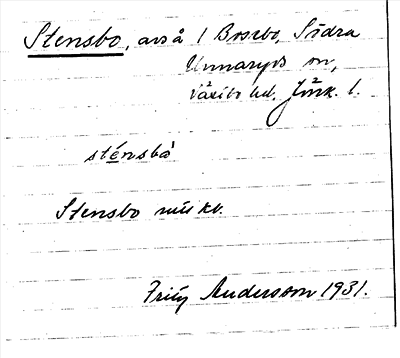 Stensbo, avs å 1 Bosebo, Södra
Unnaryds sn,
Västbo hd. Jönk. l.
sténsbò
Stensbo
Fritz Andersson 1931.